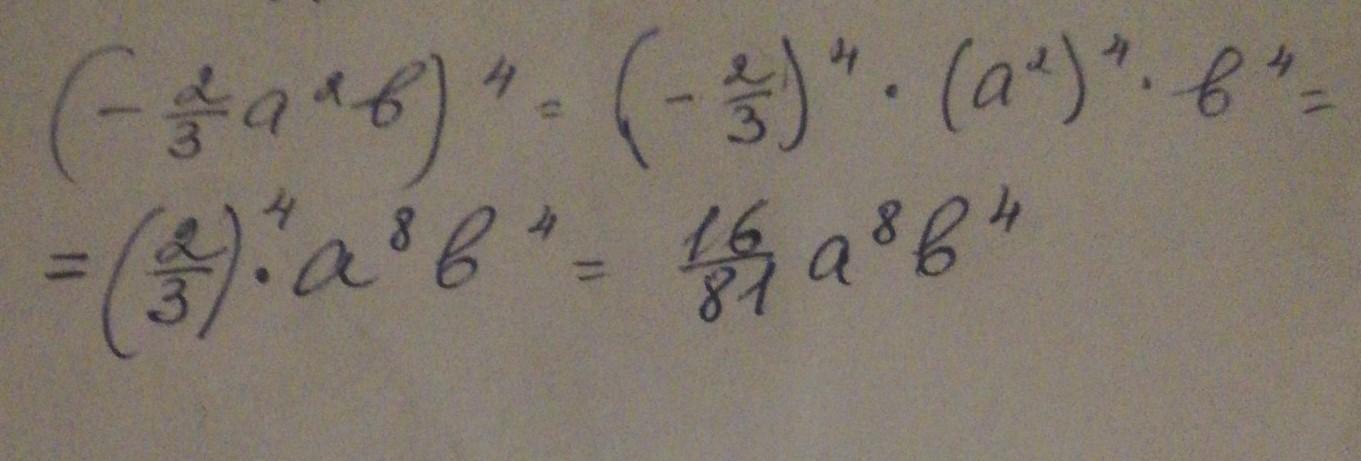 (-2/3 a²b)⁴ = (-2/3)⁴ · (a²)⁴ · b⁴ =
= (2/3)⁴ · a⁸b⁴ = 16/81 a⁸b⁴